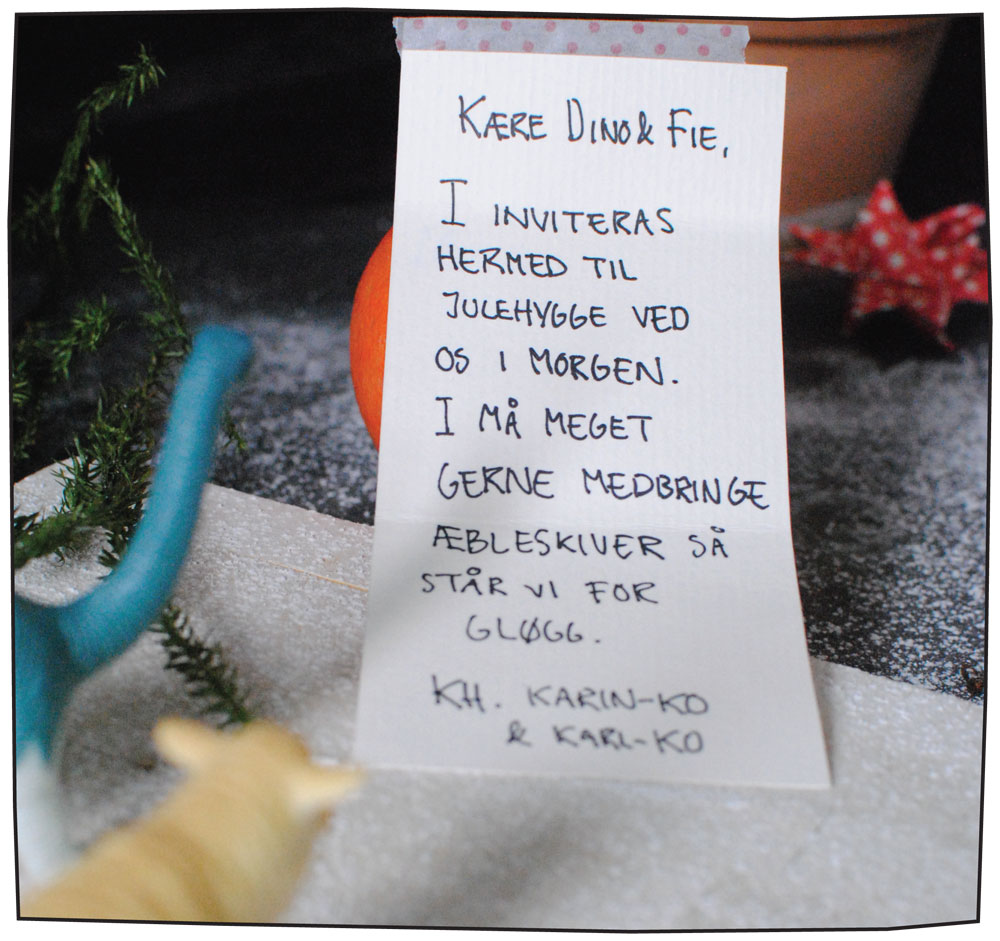 KÆRE DINO & FIE,
I INVITERAS
HERMED TIL
JULEHYGGE VED
OS I MORGEN.
I MÅ MEGET
GERNE MEDBRINGE
ÆBLESKIVER SÅ
STÅR VI FOR
GLØGG.
KH. KARIN-KO
& KARL-KO